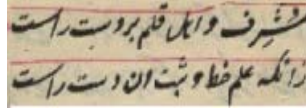 مشرف و اهل قلم بر دوست راست
زانکه علم خط و ثبت آن دست راست